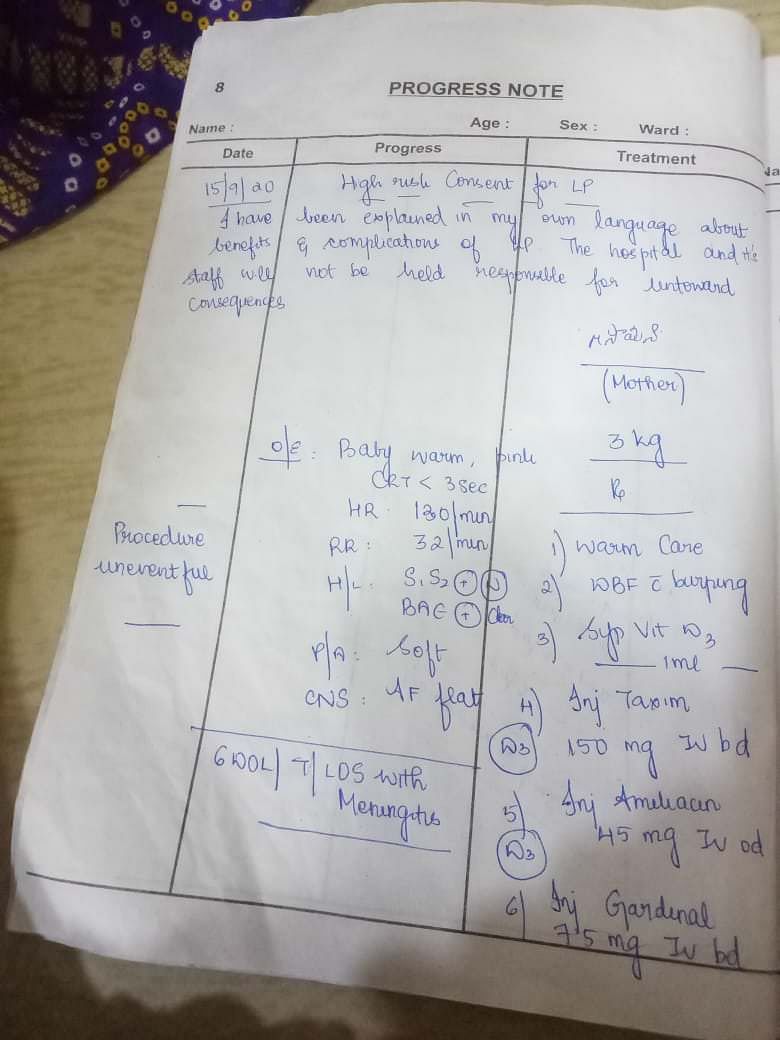 8
PROGRESS NOTE
Name : Age : Sex : Ward :
Date Progress Treatment
15/9/20 High risk Consent for LP
I have been explained in my own language about
benefits & complications of LP. The hospital and it's
staff will not be held responsible for untoward
consequences
(Mother)
3 kg
O/E : Baby warm, pink
CRT < 3 sec
HR : 130/min
RR : 32/min
H/L : S1S2 + N
BAE + Clear
P/A : Soft
CNS : AF flat
Procedure
uneventful
6 DOL / T / LOS with
Meningitis
Rx
1) Warm Care
2) DBF c̄ burping
3) Syp Vit D3
1ml
4) Inj Taxim
D3 150 mg IV bd
5) Inj Amikacin
D3 45 mg IV od
6) Inj Gardenal
7.5 mg IV bd